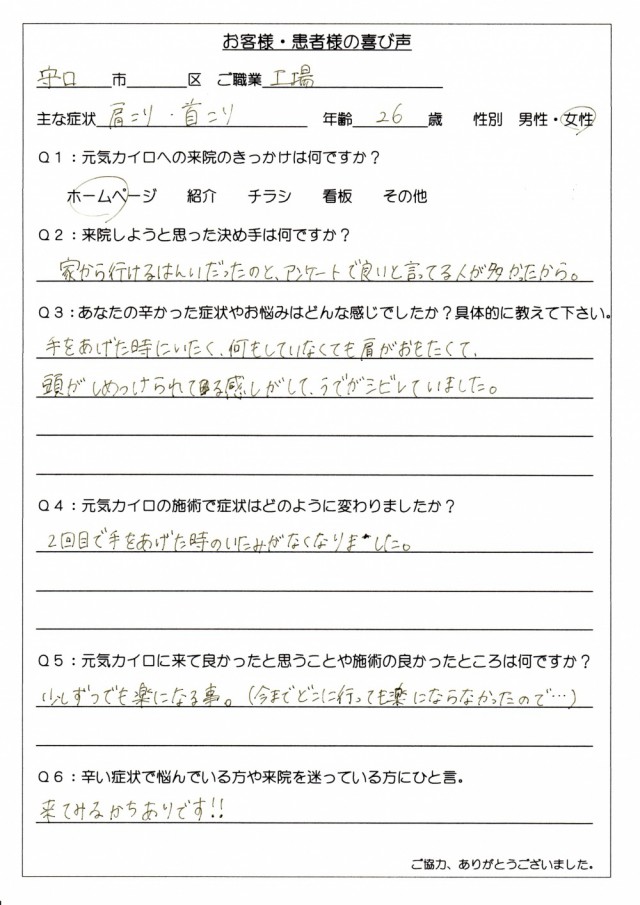 お客様・患者様の喜び声
守口市 区 ご職業 工場
主な症状 肩こり・首こり 年齢 26 歳 性別 男性・女性
Q1：元気カイロへの来院のきっかけは何ですか？
ホームページ 紹介 チラシ 看板 その他
Q2：来院しようと思った決め手は何ですか？
家から行けるはんいだったのと、アンケートで良いと言ってる人が多かったから。
Q3：あなたの辛かった症状やお悩みはどんな感じでしたか？具体的に教えて下さい。
手をあげた時にいたく、何もしていなくても肩がおもたくて、
頭がしめつけられてる感じがして、うでがシビレていました。
Q4：元気カイロの施術で症状はどのように変わりましたか？
2回目で手をあげた時のいたみがなくなりました。
Q5：元気カイロに来て良かったと思うことや施術の良かったところは何ですか？
少しずつでも楽になる事。（今までどこに行っても楽にならなかったので…）
Q6：辛い症状で悩んでいる方や来院を迷っている方にひと言。
来てみるかちありです!!
ご協力、ありがとうございました。